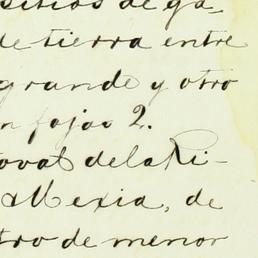 sitios de ga
de tierra entre
grande y otro
n fojas 2.
toval de la Ri-
Mexia, de
tro de menor